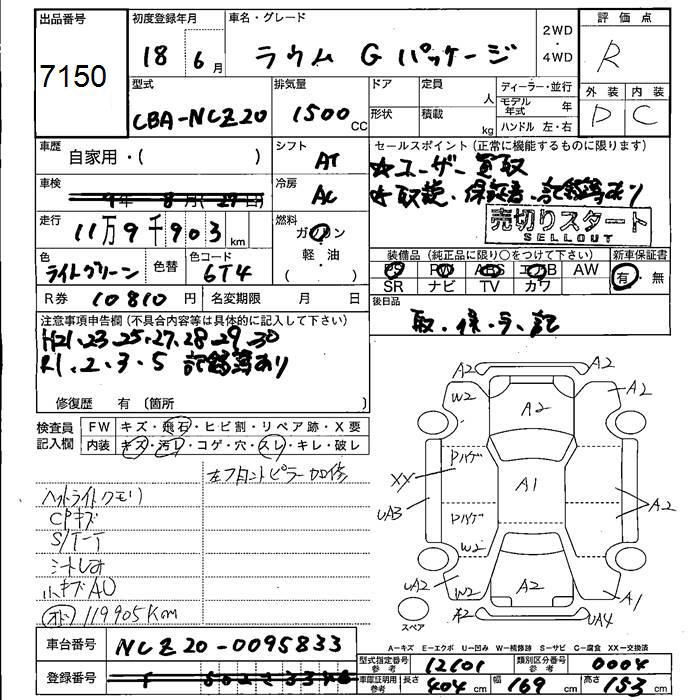 出品番号
7150
初度登録年月
18 6月
車名・グレード
ラウム G パッケージ
2WD
・
4WD
評価点
R
外装 内装
D C
型式
CBA-NCZ20
排気量
1500 CC
ドア
形状
定員 人
積載 kg
ディーラー・並行
モデル年式 年
ハンドル 左・右
車歴
自家用・( )
シフト
AT
セールスポイント(正常に機能するものに限ります)
☆ユーザー買取
☆取説、保証書、記録簿あり
売切りスタート
SELLOUT
車検
冷房
AC
走行
11万9千903km
燃料
ガソリン
軽・油
( )
色
ライトグリーン
色替
色コード
6T4
装備品(純正品に限り○をつけて下さい)
PS PW ABS エアB AW
SR ナビ TV カワ
新車保証書
有・無
R券 10810円
名変期限 月 日
後日品
取・保・ラ・記
注意事項申告欄(不具合内容等は具体的に記入して下さい)
H21.23.25.27.28.29.30
R1.2.3.5 記録簿あり
修復歴 有(箇所 )
検査員
記入欄
FW キズ・飛石・ヒビ割・リペア跡・X要
内装 キズ・汚レ・コゲ・穴・スレ・キレ・破レ
左フロントピラー加修
ヘッドライトクモリ
CPキズ
S/T-T
シートしみ
小キズAU
119905Km
A2 A2
W2 A2 A2
Pハゲ
XX A1
UA3 A2
Pハゲ
W2
UA2 W2 A2 A1
A2 UA4
スペア
車台番号
NCZ20-0095833
登録番号
A-キズ E-エクボ U-凹み W-補修跡 S-サビ C-腐食 XX-交換済
型式指定番号 参考 12101
類別区分番号 参考 0004
車庫証明用 参考 長さ 404 cm 幅 169 cm 高さ 153 cm